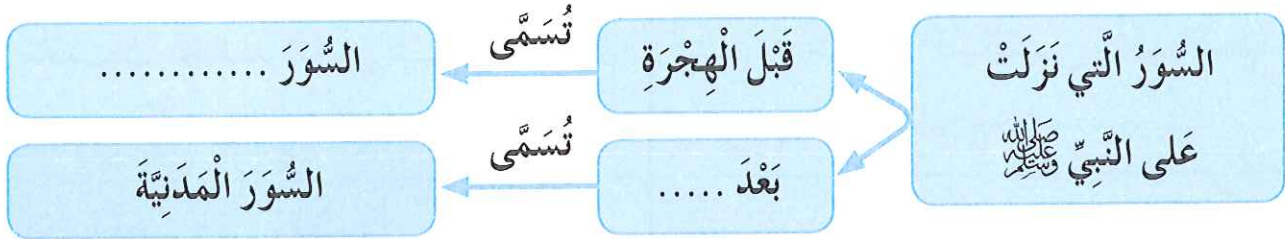 السُّوَرُ الَّتي نَزَلَتْ
عَلى النَّبِيِّ ﷺ
قَبْلَ الْهِجْرَةِ
تُسَمَّى
السُّوَرَ ............
بَعْدَ .....
تُسَمَّى
السُّوَرَ الْمَدَنِيَّةَ